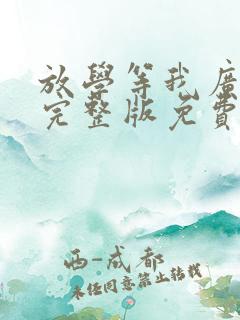 放學等我廣
完整版免費
西-成都
未经同意禁止转载